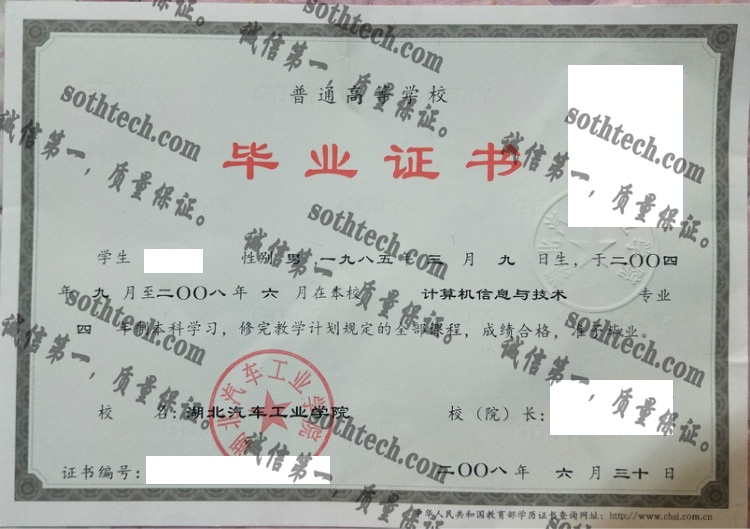 普通高等学校
毕业证书
学生 性别 男，一九八五年 三 月 九 日生，于二〇〇四
年 九 月至二〇〇八年 六 月在本校 计算机信息与技术 专业
四 年制本科学习，修完教学计划规定的全部课程，成绩合格，准予毕业。
校 名：湖北汽车工业学院
校（院）长：
证书编号：
二〇〇八年 六 月 三十 日
中华人民共和国教育部学历证书查询网址：http://www.chsi.com.cn
湖北汽车工业学院
sothtech.com
诚信第一，质量保证。
sothtech.com
诚信第一，质量保证。
sothtech.com
诚信第一，质量保证。
sothtech.com
诚信第一，质量保证。
sothtech.com
诚信第一，质量保证。
sothtech.com
诚信第一，质量保证。
sothtech.com
诚信第一，质量保证。
sothtech.com
诚信第一，质量保证。